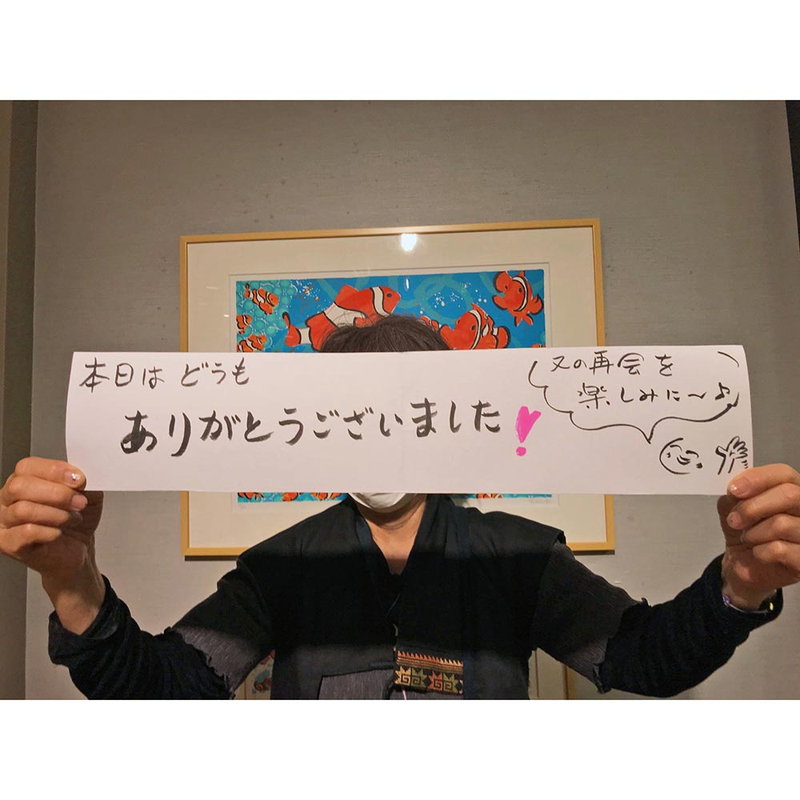 本日は どうも
ありがとうございました!
又の再会を
楽しみに〜♪